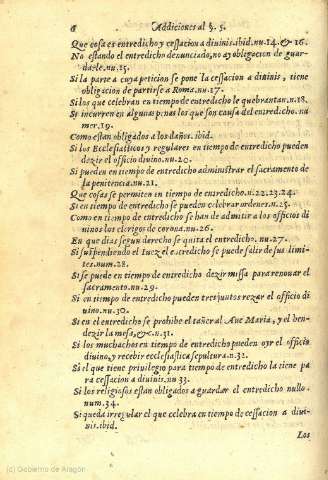 6 Addiciones al §. 5.
Que cosa es entredicho y cessacion a diuinis. ibid. nu. 14. & 16.
No estando el entredicho denunciado, no ay obligacion de guar-
darle. nu. 15.
Si la parte a cuya peticion se pone la cessacion a diuinis, tiene
obligacion de partirse a Roma. nu. 17.
Si los que celebran en tiempo de entredicho le quebrantan. n. 18.
Si incurren en algunas penas los que son causa del entredicho. nu
mer. 19.
Como estan obligados a los daños. ibid.
Si los Ecclesiasticos y regulares en tiempo de entredicho pueden
dezir el officio diuino. nu. 20.
Si pueden en tiempo de entredicho administrar el sacramento de
la penitencia. nu. 21.
Que cosas se permiten en tiempo de entredicho. n. 22. 23. 24.
Si en tiempo de entredicho se pueden celebrar ordenes. n. 25.
Como en tiempo de entredicho se han de admitir a los officios di
uinos los clerigos de corona. nu. 26.
En que dias segun derecho se quita el entredicho. nu. 27.
Si suspendiendo el Iuez el entredicho se puede salir de sus limi-
tes. num. 28.
Si se puede en tiempo de entredicho dezir missa para renouar el
sacramento. nu. 29.
Si en tiempo de entredicho pueden tres juntos rezar el officio di
uino. nu. 30.
Si en el entredicho se prohibe el tañer al Aue Maria, y el ben-
dezir la mesa, &c. n. 31.
Si los muchachos en tiempo de entredicho pueden oyr el officio
diuino, y recebir ecclesiastica sepultura. n. 32.
Si el que tiene priuilegio para tiempo de entredicho la tiene pa
ra cessacion a diuinis. nu 33.
Si los religiosos estan obligados a guardar el entredicho nullo.
num. 34.
Si queda irregular el que celebra en tiempo de cessacion a diui-
nis. ibid.
Los
(c) Gobierno de Aragón